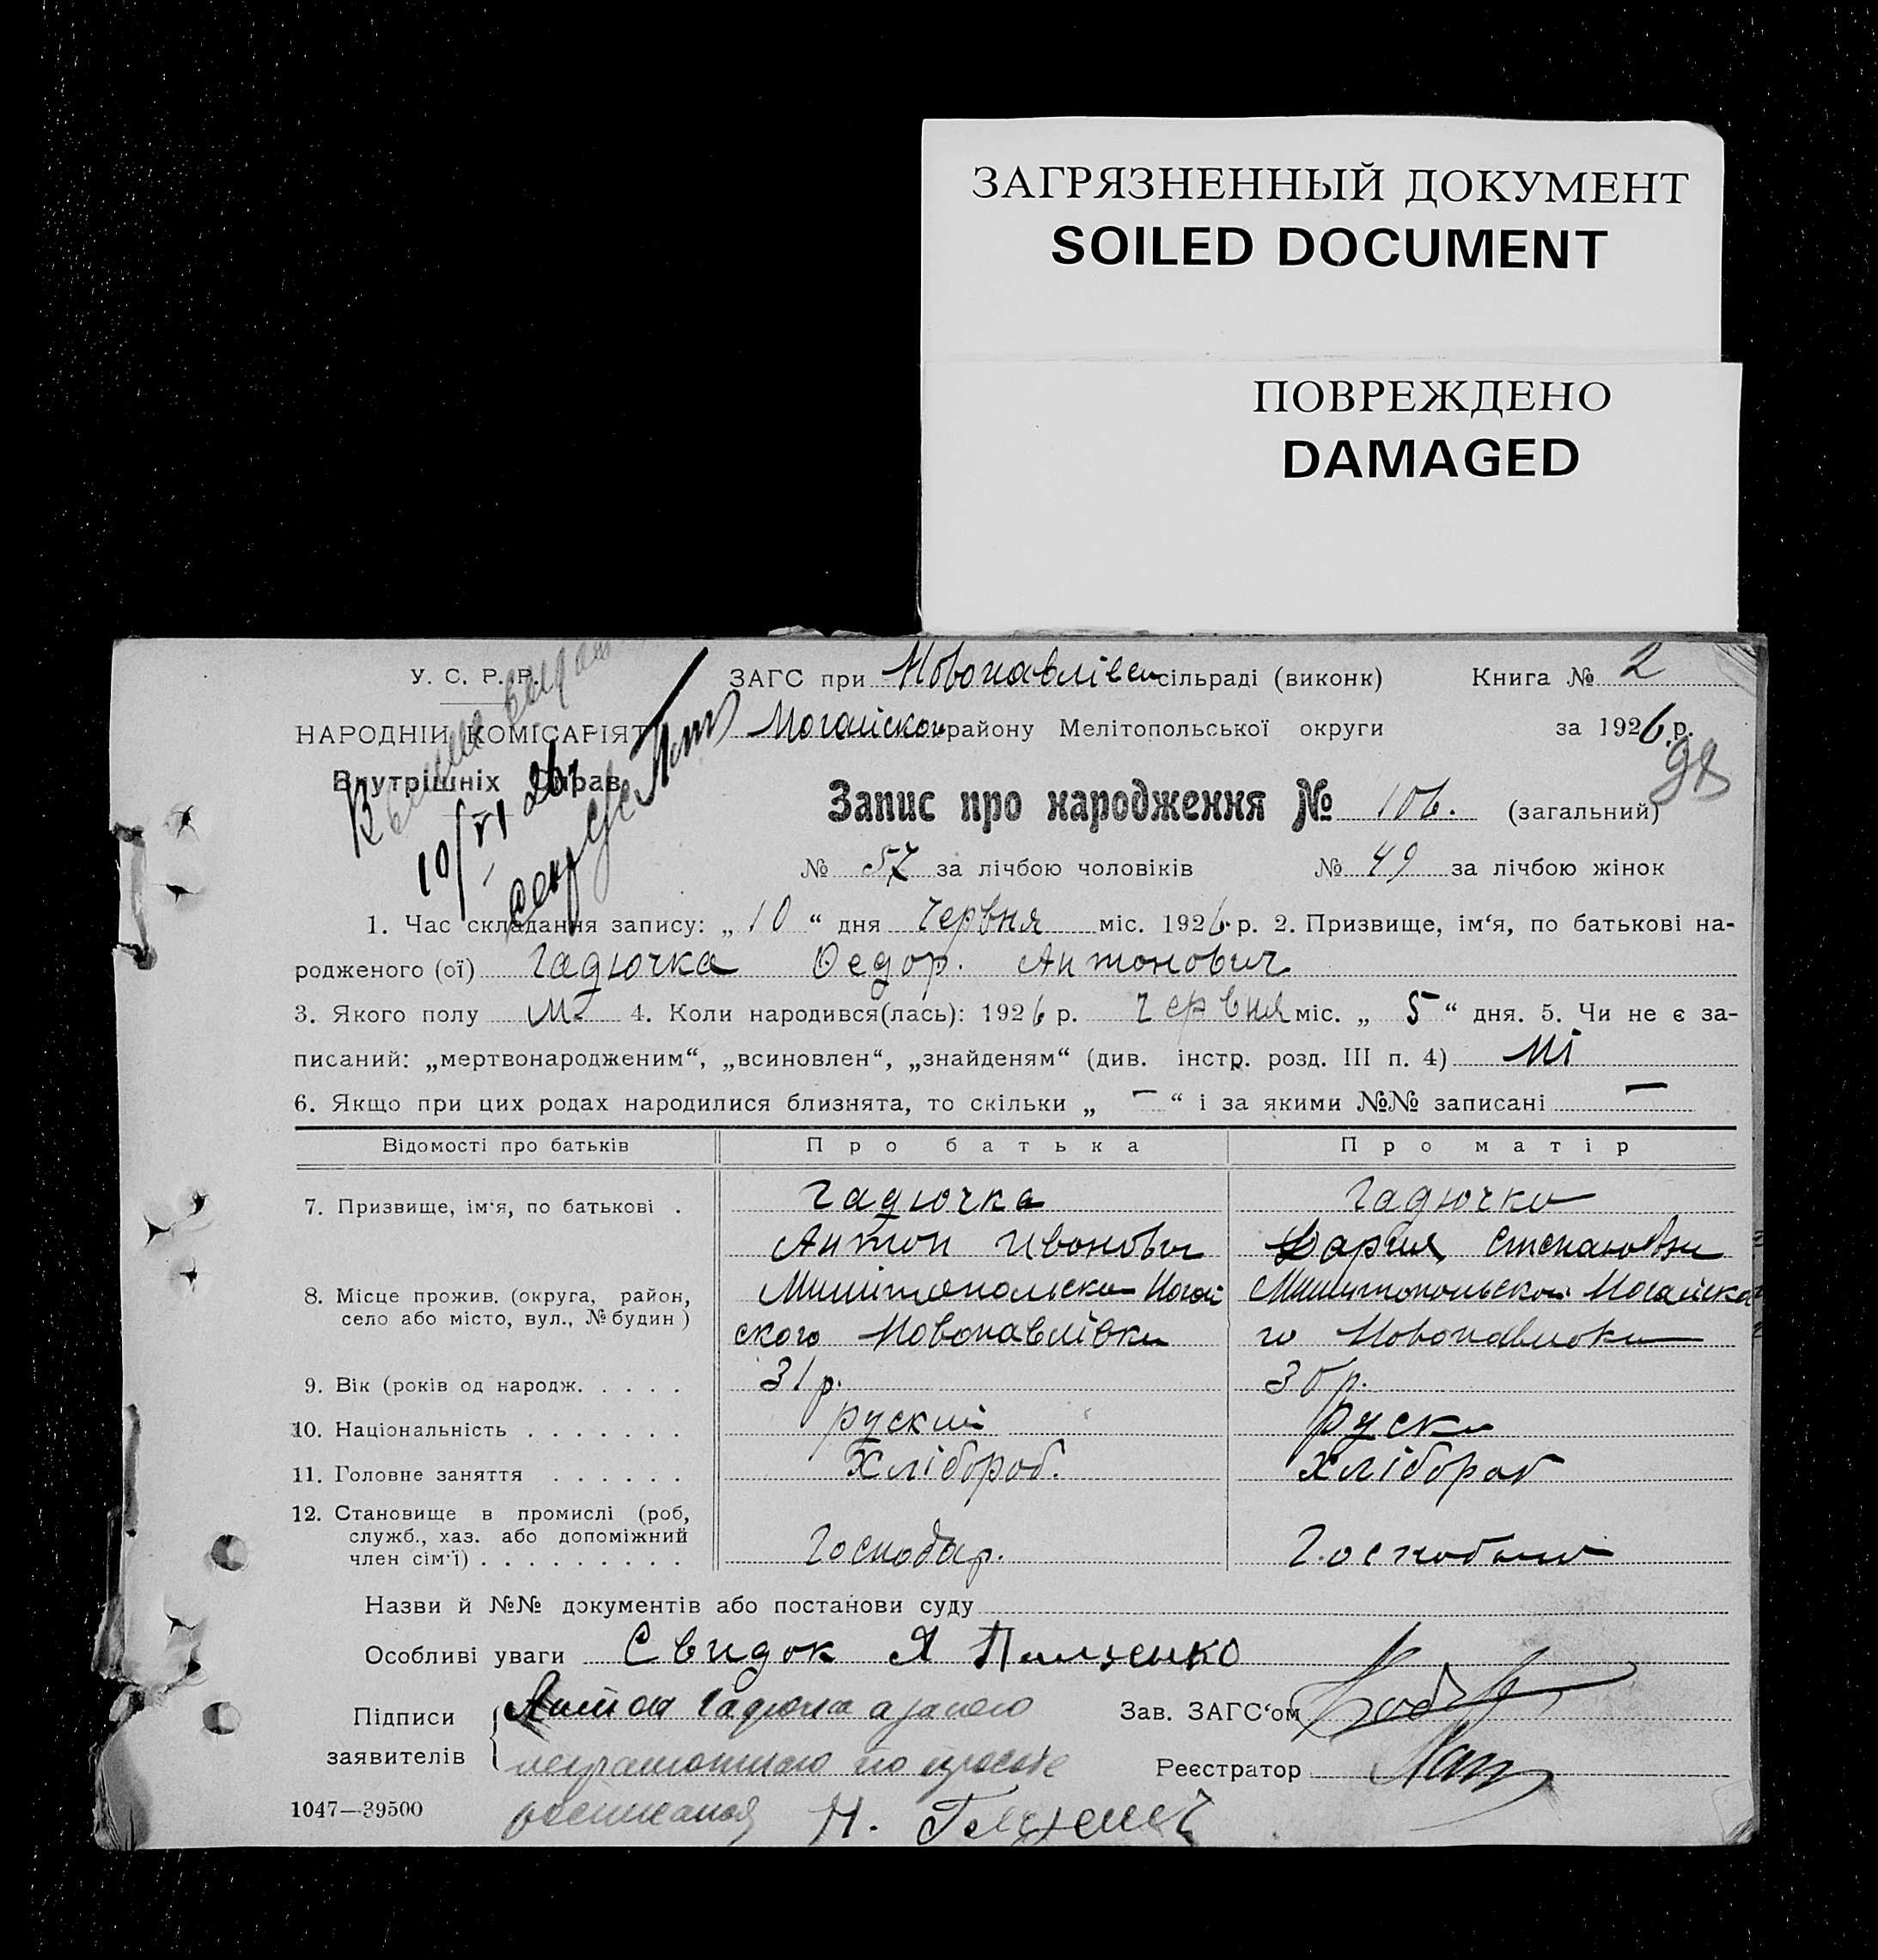 ЗАГРЯЗНЕННЫЙ ДОКУМЕНТ
SOILED DOCUMENT
ПОВРЕЖДЕНО
DAMAGED
У. С. Р. Р.
ЗАГС при Новопавлівск сільраді (виконк) Книга № 2
НАРОДНІЙ КОМІСАРІЯТ
Ногайском району Мелітопольської округи за 1926 р.
98
Внутрішніх Справ
10/VI 26
Запис про народження № 106. (загальний)
№ 57 за лічбою чоловіків № 49 за лічбою жінок
1. Час складання запису: „ 10 “ дня Червня міс. 1926 р. 2. Призвище, ім‘я, по батькові на-
родженого (ої) Гадючка Федор. Антонович
3. Якого полу м 4. Коли народився(лась): 1926 р. Червня міс. „ 5 “ дня. 5. Чи не є за-
писаний: „мертвонародженим“, „всиновлен“, „знайденям“ (див. інстр. розд. III п. 4) Ні
6. Якщо при цих родах народилися близнята, то скільки „ — “ і за якими №№ записані —
Відомості про батьків Про батька Про матір
7. Призвище, ім‘я, по батькові . Гадючка Гадючка
Антон Иванович Дария Степановна
8. Місце прожив. (округа, район, Ногай
село або місто, вул., № будин ) ского Новопавлівки го Новопавловки
9. Вік (років од народж. . . . . 31 р. 30 р.
10. Національність . . . . . . . руский руска
11. Головне заняття . . . . . . Хлібороб. Хлібороб
12. Становище в промислі (роб,
служб., хаз. або допоміжний
член сім‘ї) . . . . . . . . . Господар.
Назви й №№ документів або постанови суду
Особливі уваги Свидок Я
Підписи Антон Гадючка а за него Зав. ЗАГС‘ом
заявителів неграмотного по просьбе Реєстратор
1047—39500 росписался Н.